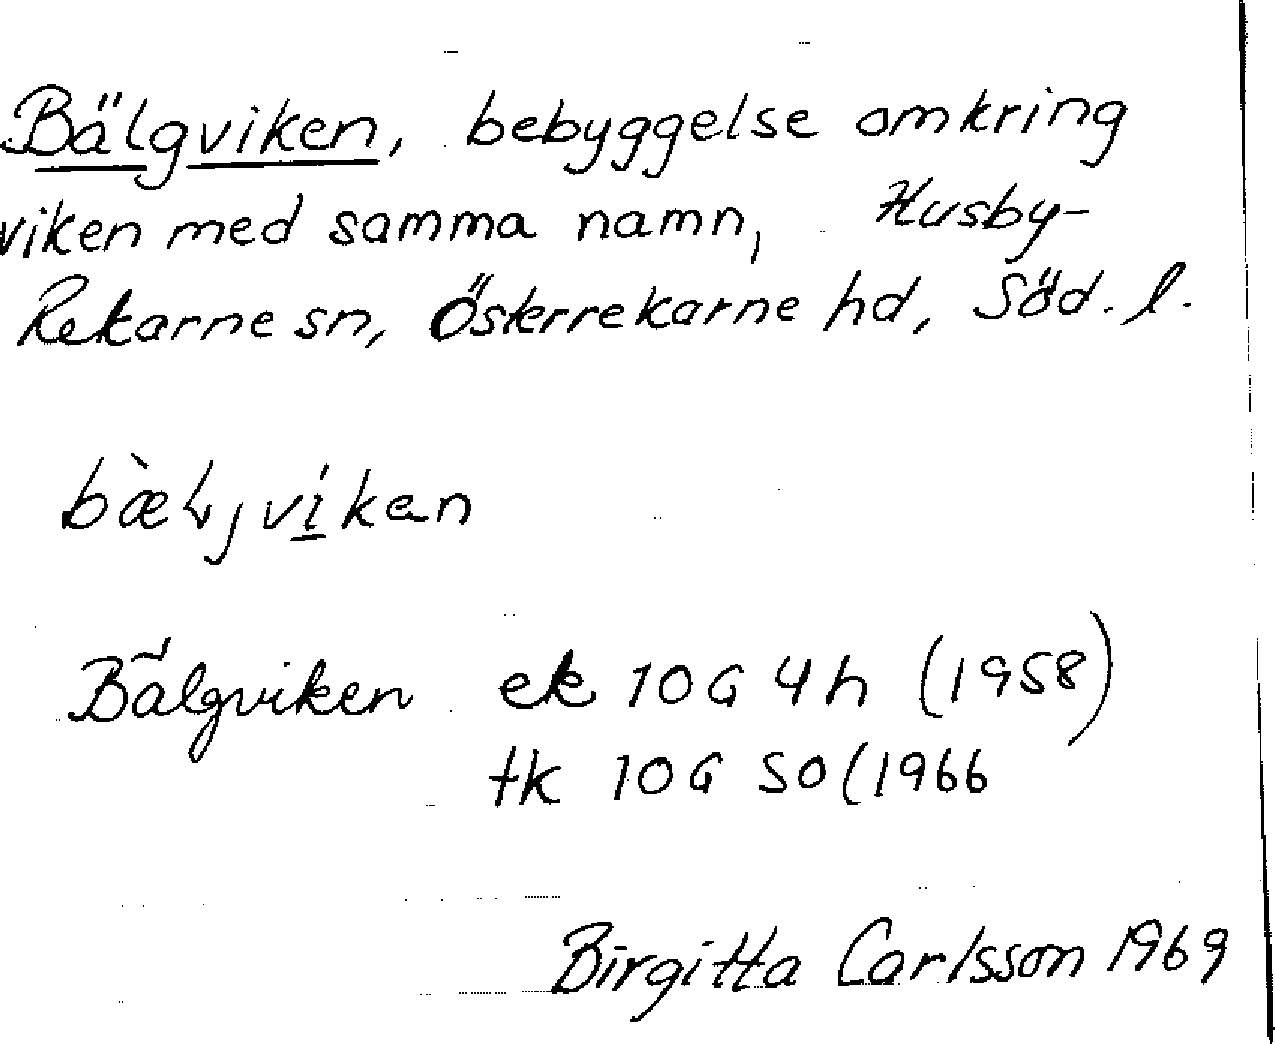 Bälgviken, bebyggelse omkring
viken med samma namn, Husby-
Rekarne sn, Österrekarne hd, Söd. l.
Bälgviken ek 10G 4h (1958)
tk 10G SO (1966
Birgitta Carlsson 1969